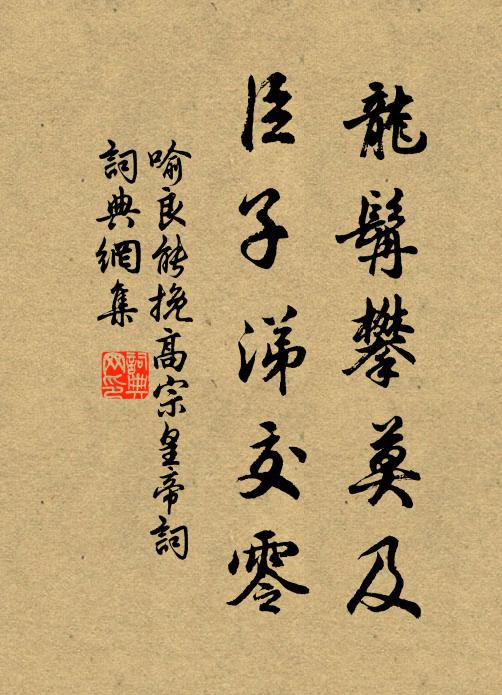 龍髯攀莫及
臣子涕交零
喻良能挽高宗皇帝詞
詞典網集
詞典网印